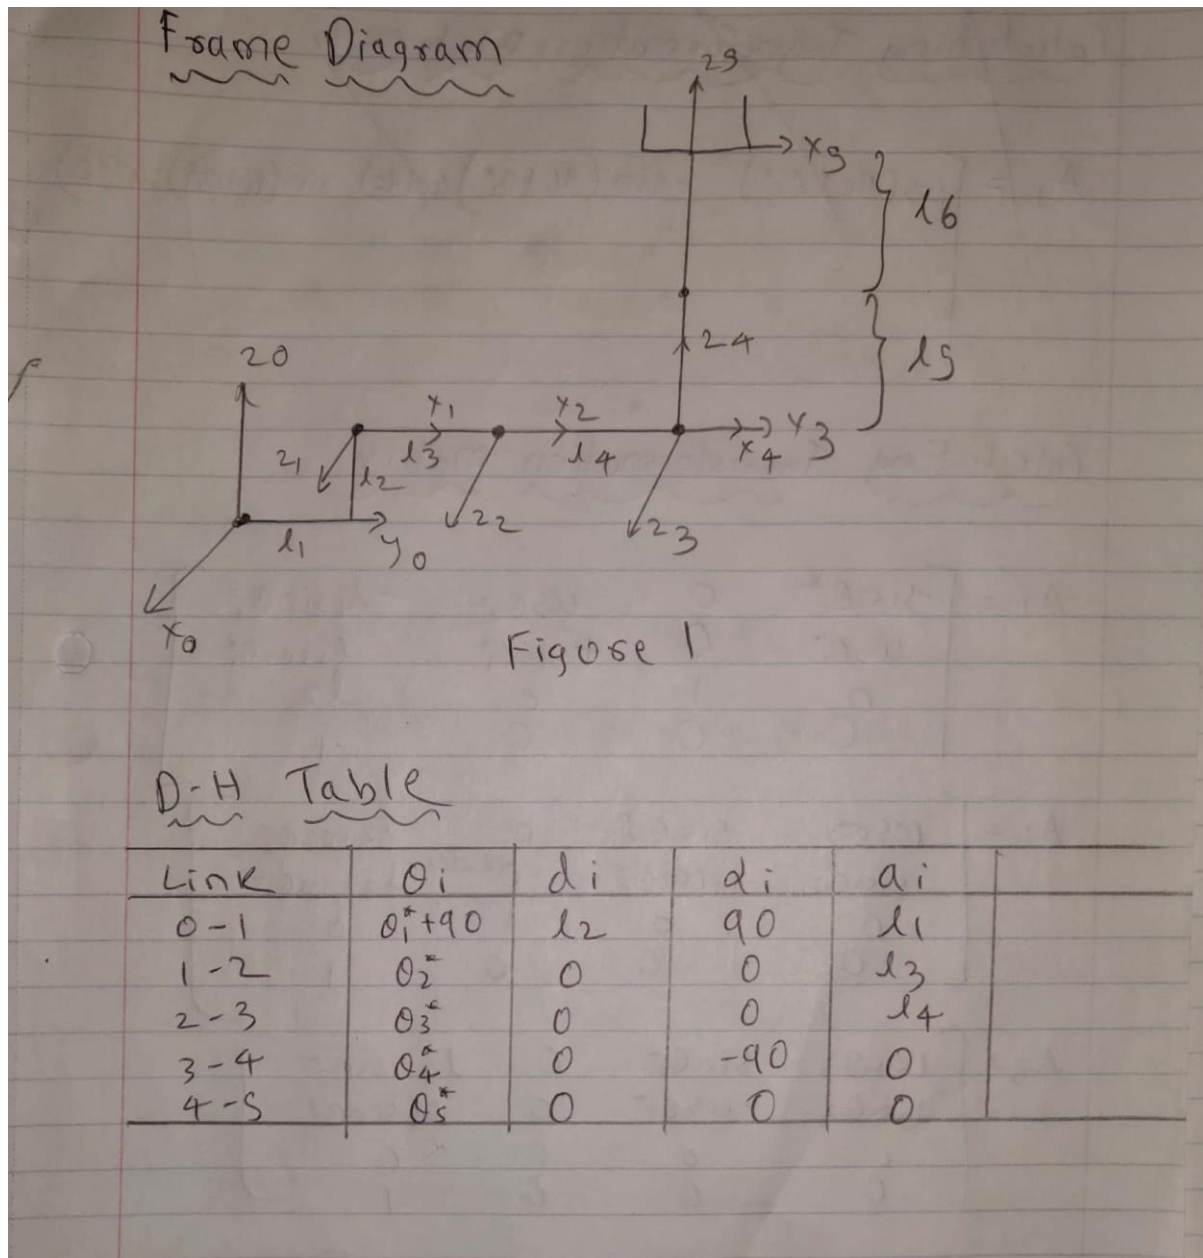 Frame Diagram
z5
x5
l6
z4
l5
z0
x1
x2
x3
x4
z1
l2
l3
l4
z2
z3
l1
y0
x0
Figure 1
D-H Table
Link θi di αi ai
0-1 θ1*+90 l2 90 l1
1-2 θ2* 0 0 l3
2-3 θ3* 0 0 l4
3-4 θ4* 0 -90 0
4-5 θ5* 0 0 0